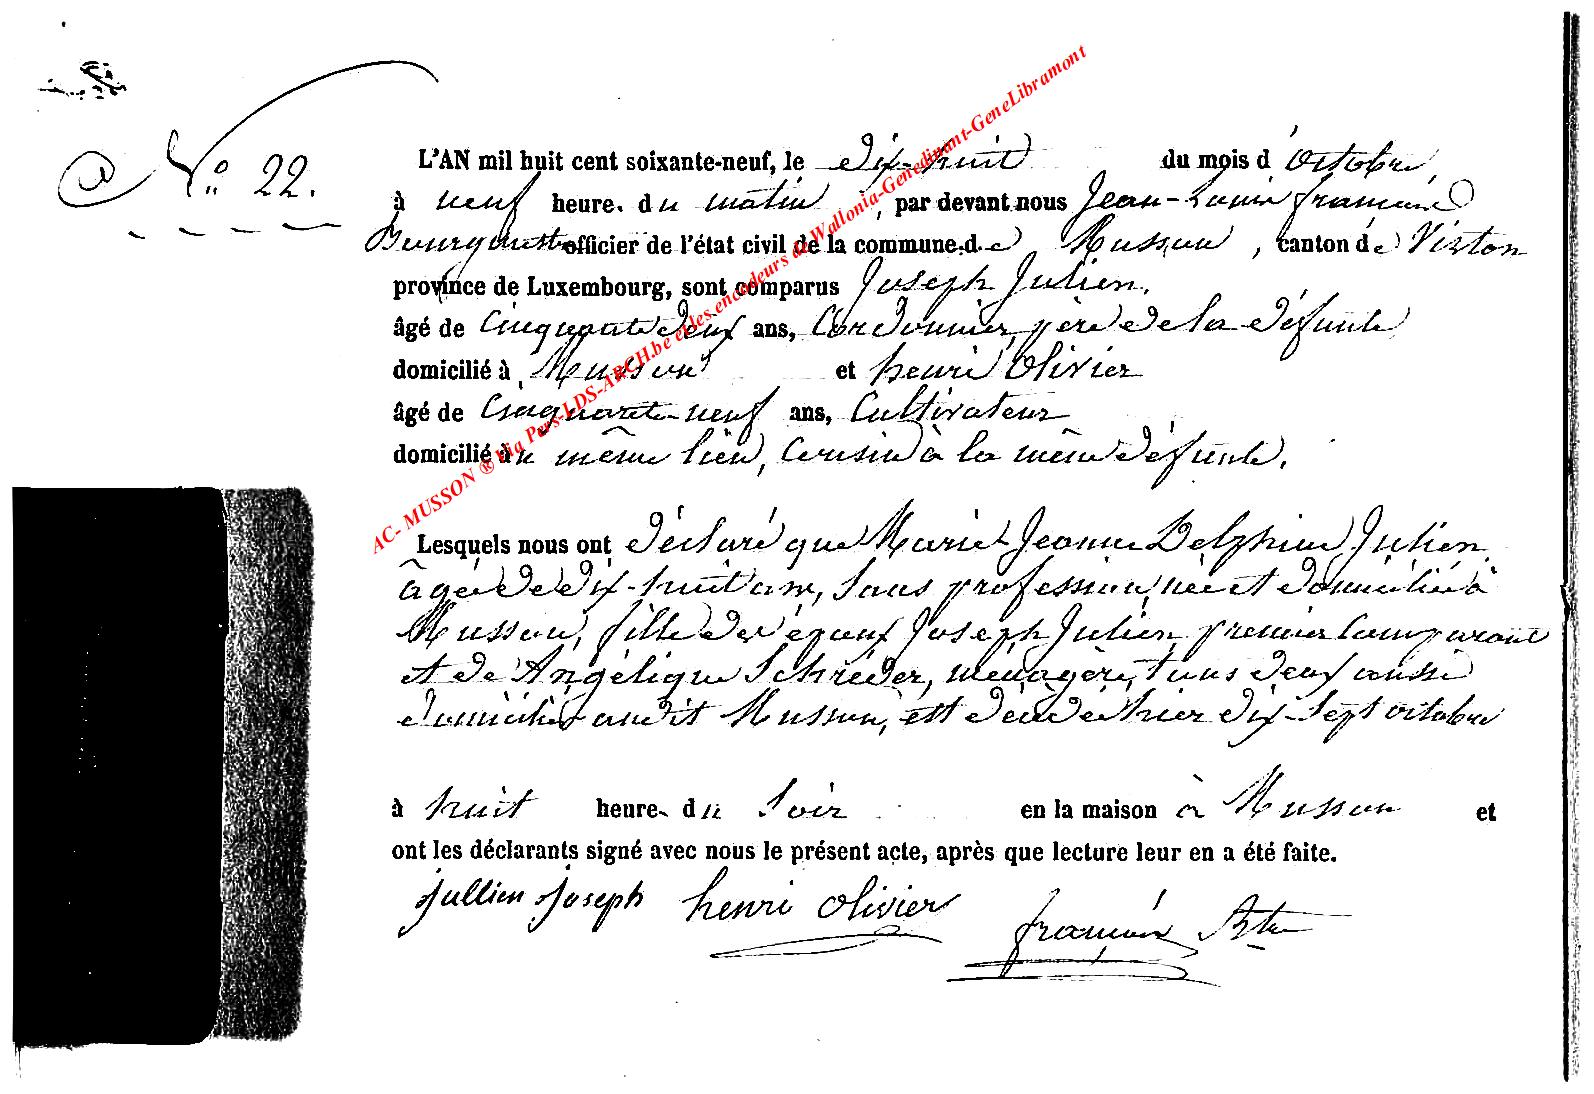 N° 22.
L'AN mil huit cent soixante-neuf, le dix-huit du mois d'octobre,
à neuf heure. du matin, par devant nous Jean-Louis françois
Bourgmestre officier de l'état civil de la commune de Musson, canton de Virton
province de Luxembourg, sont comparus Joseph Julien,
âgé de Cinquante deux ans, Cordonnier, père de la défunte
domicilié à Musson et henri Olivier
âgé de Cinquante-neuf ans, Cultivateur
domicilié au même lieu, Cousin à la même défunte.
Lesquels nous ont déclaré que Marie Jeanne Delphine Julien
âgée de dix-huit ans, sans profession, née et domiciliée à
Musson, fille des époux Joseph Julien, premier Comparant
et de Angélique Schréder, ménagère, tous deux aussi
domiciliés audit Musson, est décédée hier dix-sept octobre
à huit heure. du soir en la maison à Musson et
ont les déclarants signé avec nous le présent acte, après que lecture leur en a été faite.
jullien joseph henri olivier françois
AC- MUSSON ® Via Pers-LDS-ARCH.be et les encodeurs de Wallonia-Genedinant-GeneLibramont